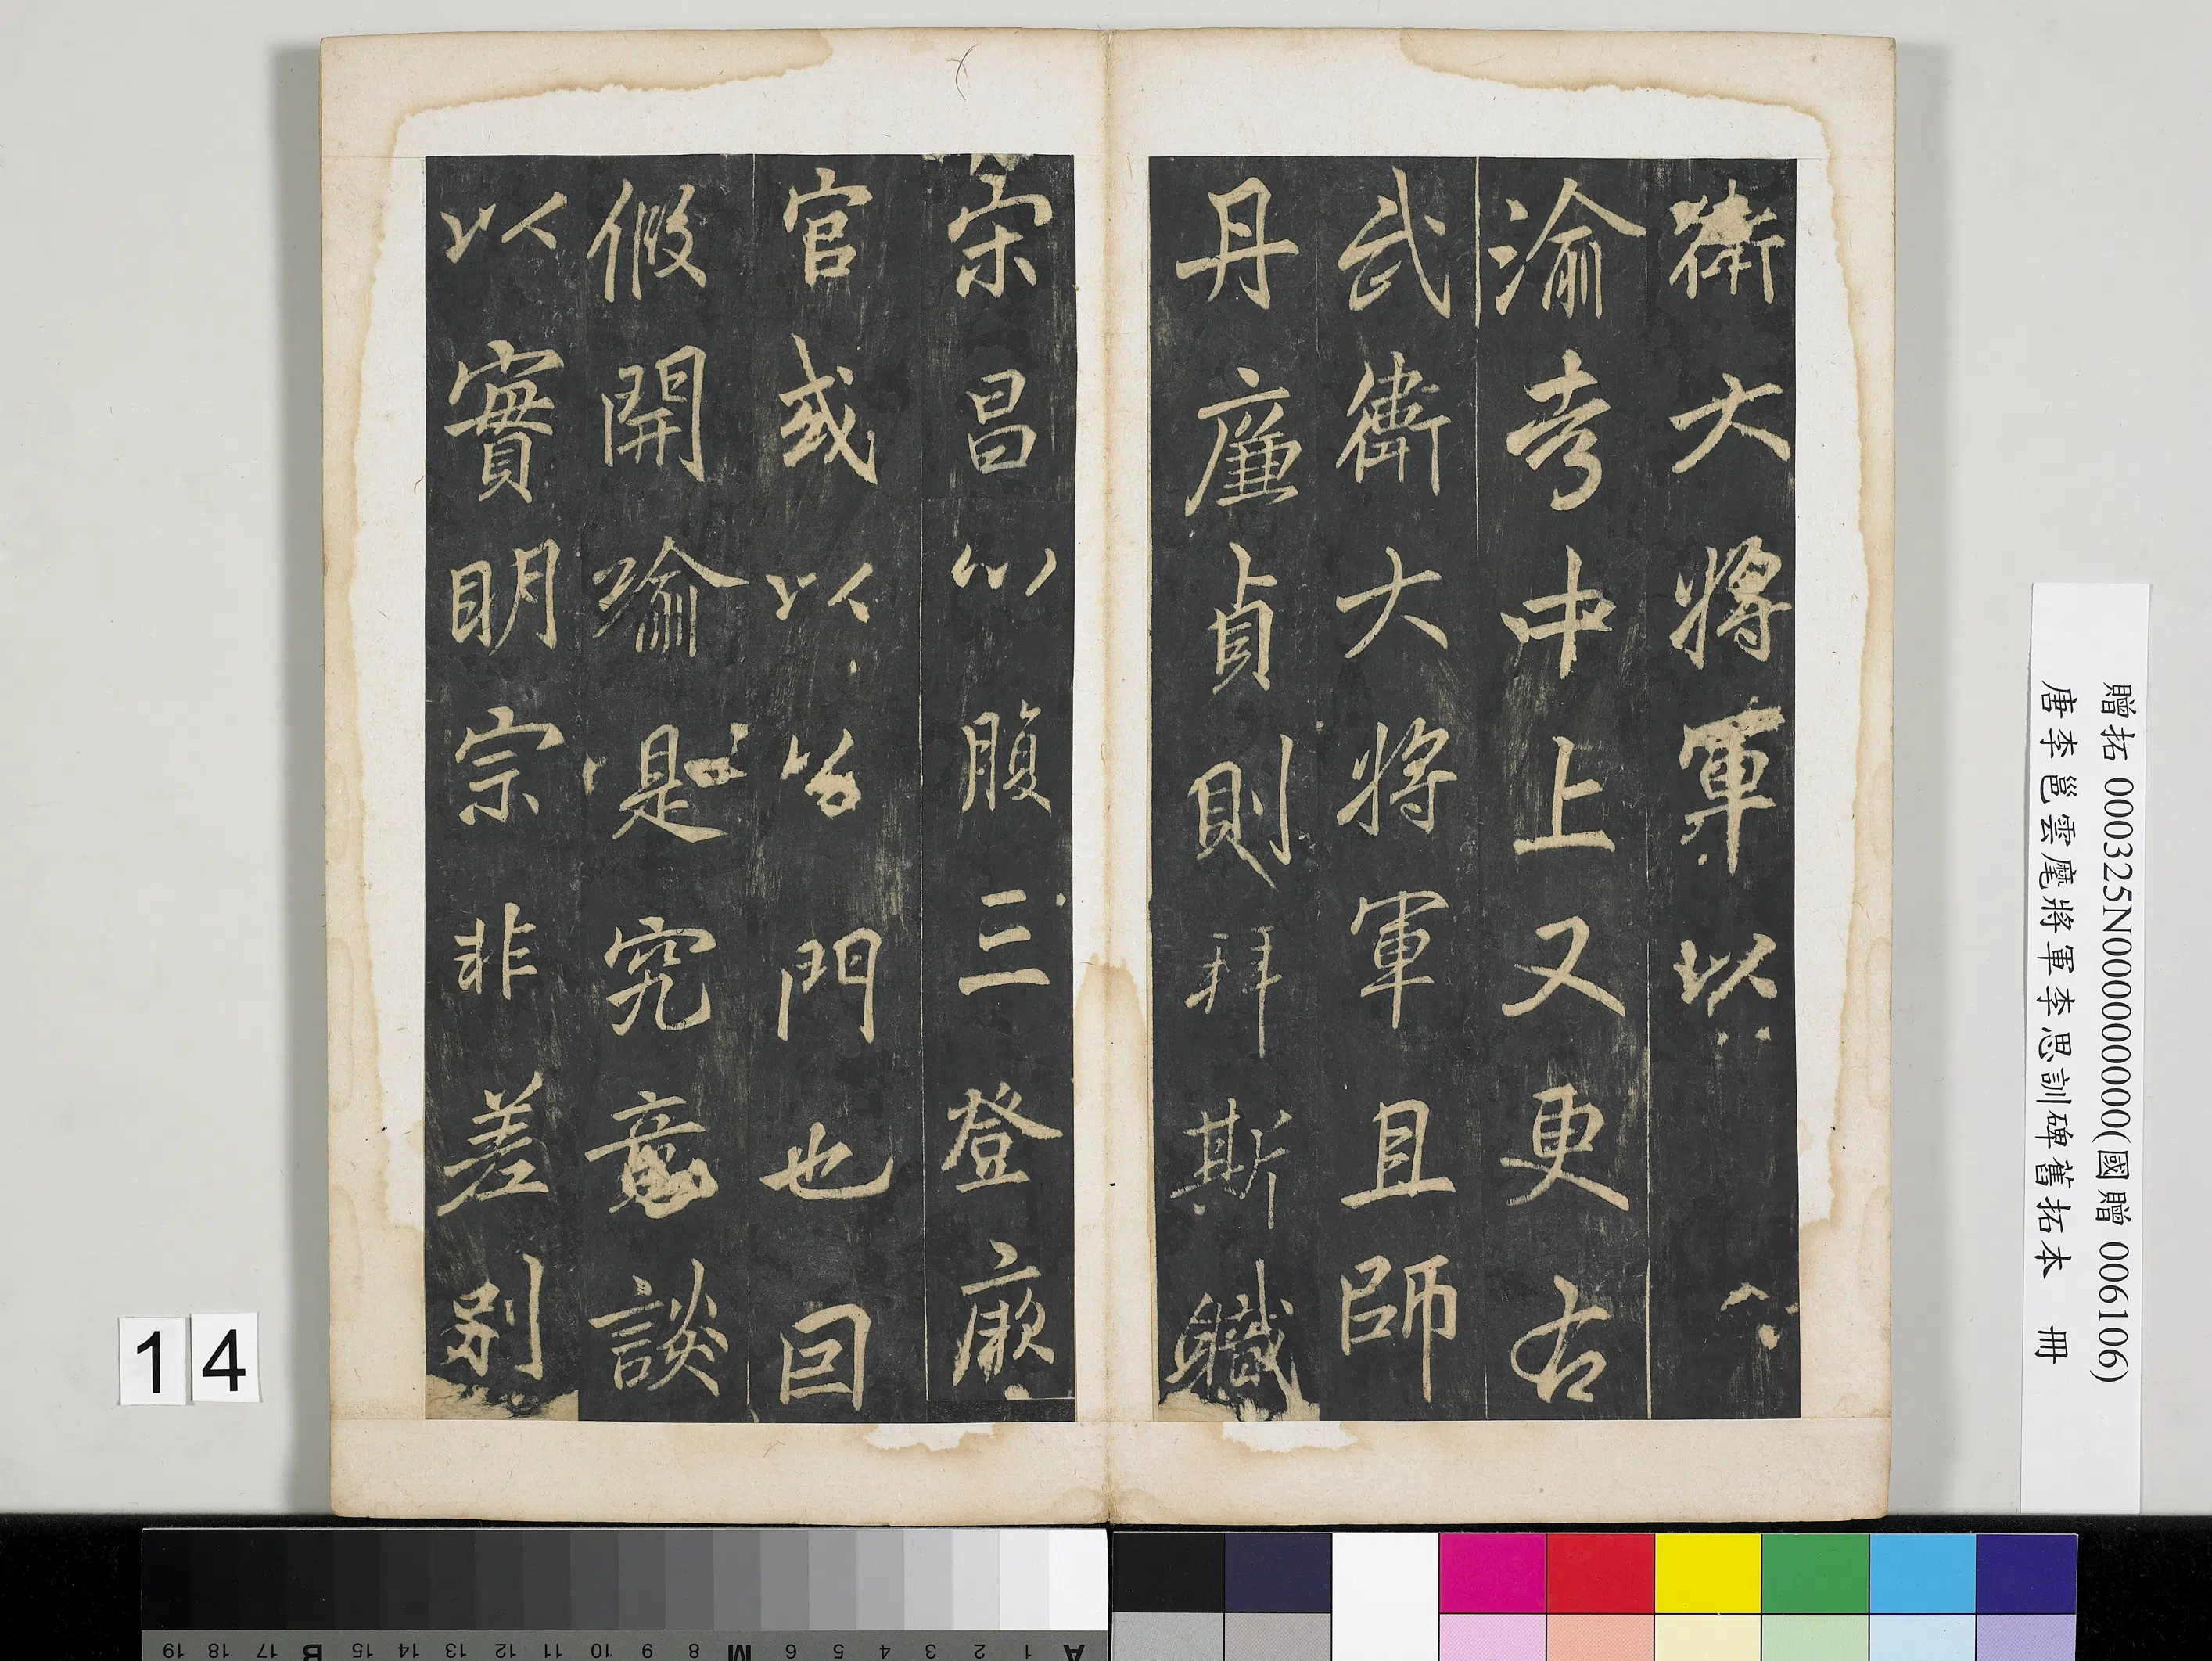 衛大將軍以
渝考中上又更右
武衛大將軍且師
丹廉貞則拜斯職
宋昌心腹三登厥
官或以公門也因
假開喻是究竟談
以實明宗非差別
贈拓 000325N000000000(國贈 006106)
唐李邕雲麾將軍李思訓碑舊拓本 冊
14
A 1 2 3 4 5 6 M 8 9 10 11 12 13 14 15 B 17 18 19